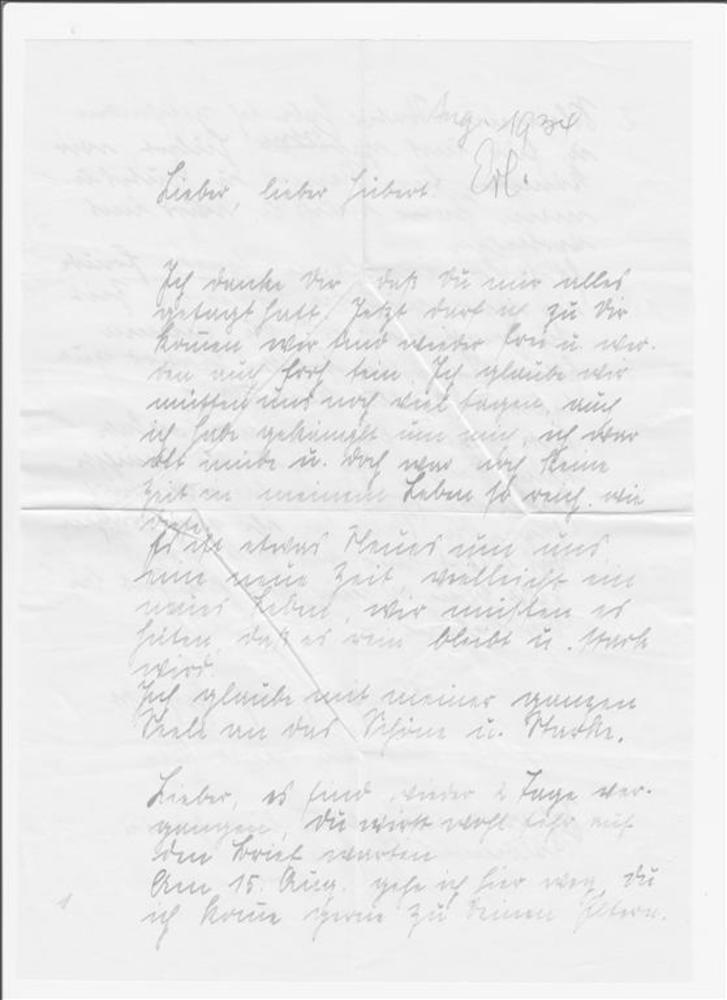 Aug. 1934
Erl.
Lieber, lieber Hubert!
Ich danke Dir, daß Du mir alles
gesagt hast. Jetzt darf ich zu Dir
kommen wir sind wieder frei u. wer-
den auch froh sein. Ich glaube wir
müssen uns noch viel sagen, auch
ich habe gekämpft um mich, ich war
oft müde u. doch war noch keine
Zeit in meinem Leben so reich, wie
diese.
Es ist etwas Neues um uns
eine neue Zeit, vielleicht ein
neues Leben, wir müssen es
hüten, daß es rein bleibt u. stark
wird.
Ich glaube mit meiner ganzen
Seele an das Schöne u. Starke.
Lieber, es sind wieder 2 Tage ver-
gangen, Du wirst wohl sehr auf
den Brief warten
Am 15. Aug. gehe ich hier weg, Du
ich komme gerne zu Deinen Eltern.
1